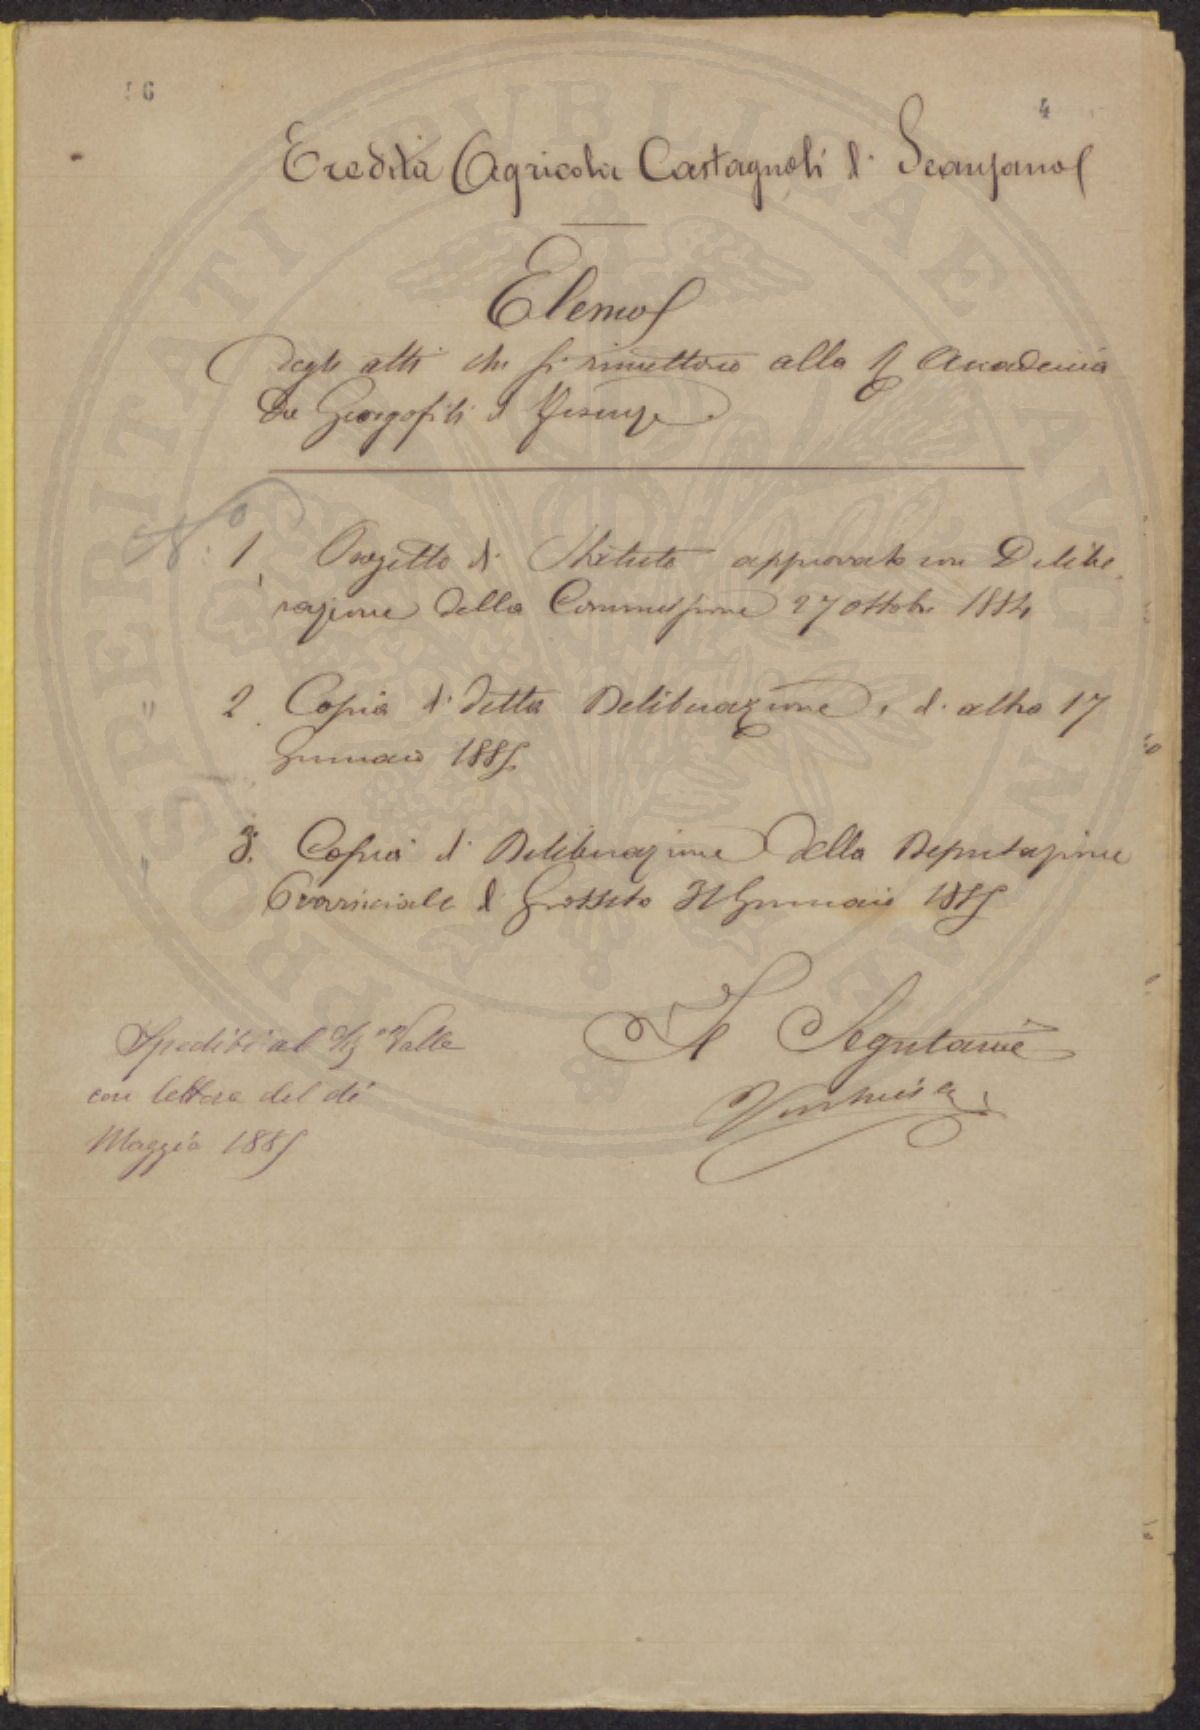 56
4
Eredità Agricola Castagnoli di Scansano
Elenco
degli atti che si rimettono alla R Accademia
dei Georgofili di Firenze
N.° 1. Progetto di Statuto approvato con Delibe
razione della Commissione 27 ottobre 1884
" 2. Copia di detta Deliberazione, e di altra 17
Gennaio 1885
" 3. Copia di Deliberazione della Deputazione
Provinciale di Grosseto 31 Gennaio 1885
Il Segretario
Spediti al Sig Valle
con lettera del dì
Maggio 1885
PROSPERITATI PUBLICAE AUGENDAE